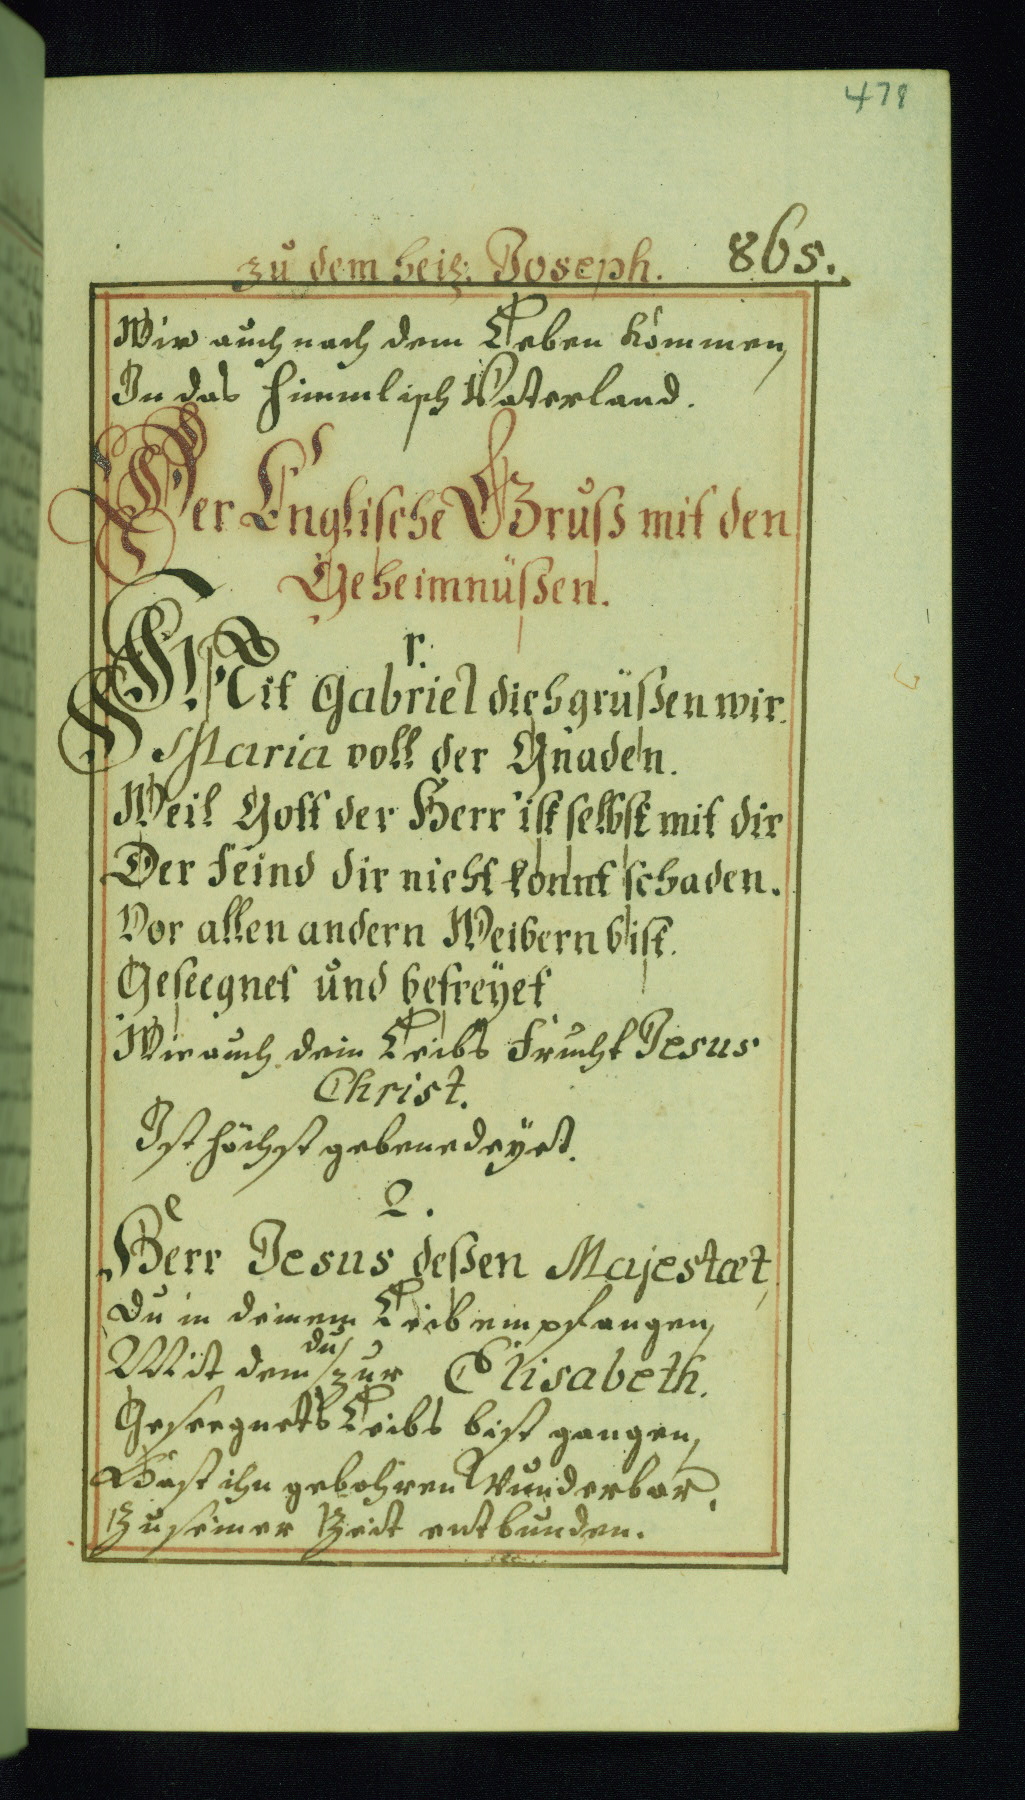 479
zu dem heil: Joseph. 865.
Wir auch nach dem Leben kommen,
In das himmlisch Vaterland.
Der Englische Gruß mit den
Geheimnüßen.
1.
Mit Gabriel dich grüßen wir.
Maria voll der Gnaden.
Weil Gott der Herr ist selbst mit dir
Der Feind dir nicht konnt schaden.
Vor allen andern Weibern bist.
Geseegnet und befreyet
Wie auch dein Leibs Frucht Jesus
Christ.
Ist höchst gebenedeyet.
2.
Herr Jesus deßen Majestæt,
Du in deinem Leib empfangen,
Mit dem du zur Elisabeth.
Geseegnets Leibs bist gangen,
Hast ihn gebohren Wunderbar,
Zu seiner Zeit entbunden.